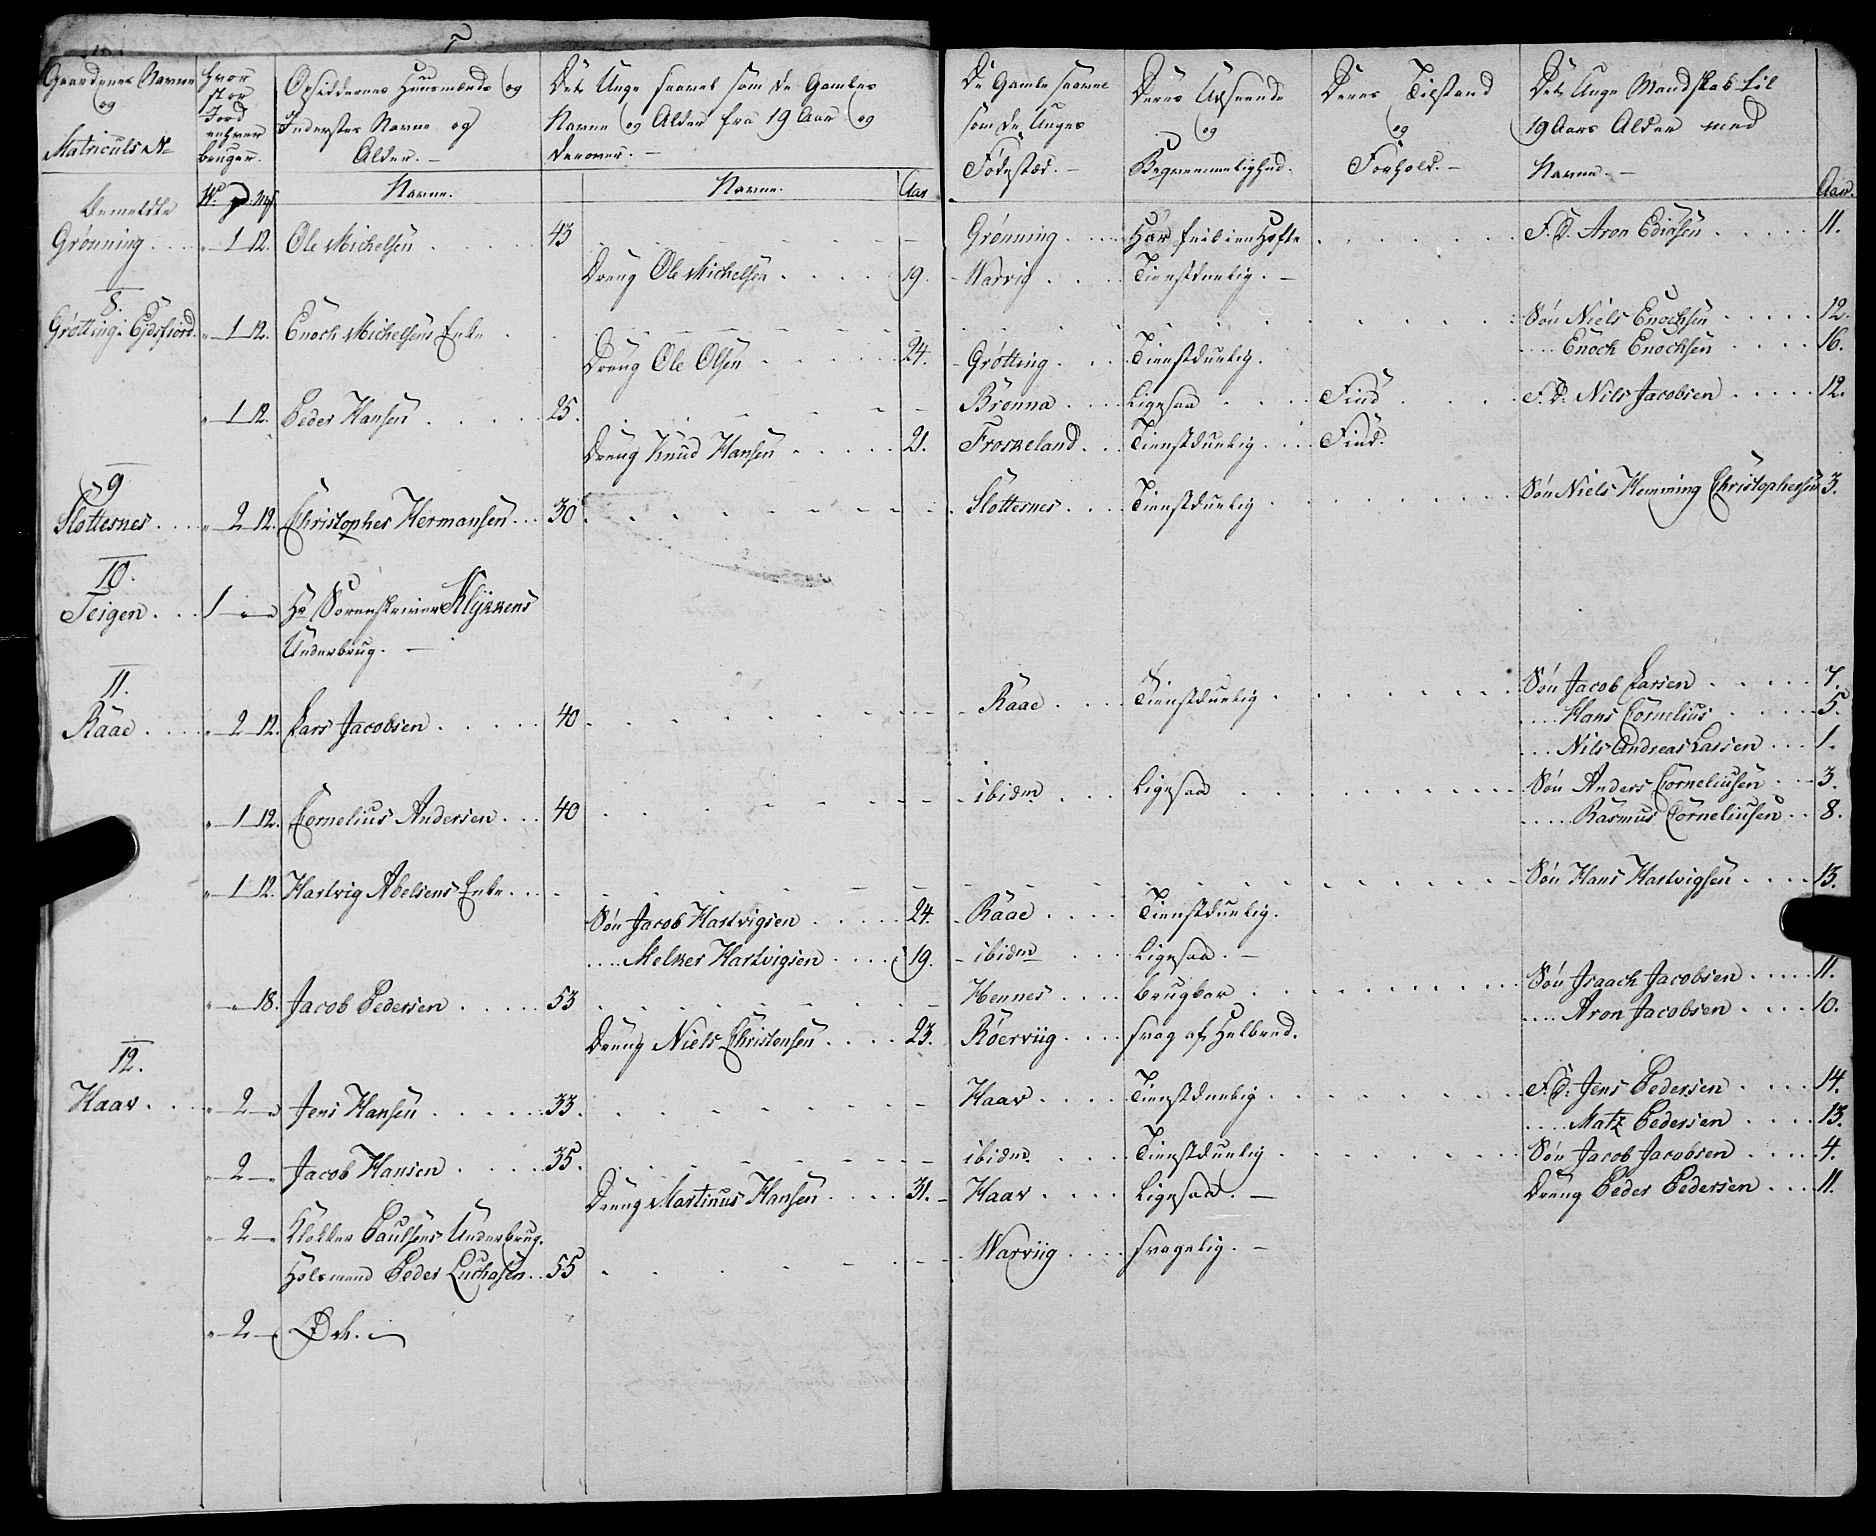 Gaardenes Navne og Matriculs No
Hvor stor Jord enhver bruger.
Opsiddernes Huusmænds og Inderstes Navne og Alder. -
Det Unge saavel som de Gamles Navne og Alder fra 19 Aar og derover. -
De Gamle saavel som de Unges Fødestæd. -
Deres Udseende og Beqvemmelighed.
Deres Tilstand og Forhold. -
Det Unge Mandskab til 19 Aars Alder med
Navne. - Aar.
W. P. Mk
Navne.
Navne. Aar
Bemeldte
Grønning . . . " 1 12. Ole Michelsen . . . 43 . . . Grønning . . . Har feil i en Hofte . . . F. D. Aron Ediasen . . . 11.
Dreng Ole Michelsen . . . 19. Warvig . . . Tienstduelig. -
8.
Grøtting i Eidsfiord. " 1 12. Enoch Michelsens Enke . . . Søn Niels Enochsen . . . 12.
. . . Enoch Enochsen . . . 16.
Dreng Ole Olsen . . . 24. Grøtting . . . Tienstduelig.
" 1 12. Peder Hansen . . . 25. . . . Brønna . . . Ligesaa . . . Find . . . F. D. Nils Jacobsen . . . 12.
Dreng Knud Hansen . . . 21. Froskeland . . . Tienstduelig . . . Find.
9
Slotternes . . . " 2 12. Christopher Hermansen . . . 30 . . . Slotternes . . . Tienstduelig . . . Søn Niels Hemming Christophersen 3.
10.
Teigen . . . 1 " " Hr Sorenskriver Klykkens
Underbrug. -
11.
Raae . . . " 2 12. Lars Jacobsen . . . 40 . . . Raae . . . Tienstduelig . . . Søn Jacob Larsen . . . 7.
. . . Hans Cornelius . . . 5.
. . . Nils Andreas Larsen . . . 1.
" 1 12. Cornelius Andersen . . . 40 . . . ibidm . . . Ligesaa . . . Søn Anders Corneliusen . . . 3.
. . . Rasmus Corneliusen . . . 8.
" 1 12. Hartvig Abelsens Enke . . . Søn Hans Hartvigsen . . . 13.
Søn Jacob Hartvigsen . . . 24. Raae . . . Tienstduelig.
. . . Melker Hartvigsen . . . 19. ibidm . . . Ligesaa. -
" " 18. Jacob Pedersen . . . 53 . . . Hennes . . . brugbar . . . Søn Isaach Jacobsen . . . 11.
. . . Aron Jacobsen . . . 10.
Dreng Niels Christensen . . . 23. Røerviig . . . svag af Helbred.
12.
Haav . . . " 2 " Jens Hansen . . . 33. . . . Haav . . . Tienstduelig . . . F. D. Jens Pedersen . . . 14.
. . . Matz Pedersen . . . 13.
" 2 " Jacob Hansen . . . 35. . . . ibidm . . . Tienstduelig . . . Søn Jacob Jacobsen . . . 4.
Dreng Martinus Hansen . . . 31. Haav . . . Ligesaa. - Dreng Peder Pedersen . . . 11.
" 2 " Klokker Paulsens Underbrug.
Huusmand Peder Luchasen . . . 55 . . . Warviig . . . svagelig. -
" 2 " Øde.